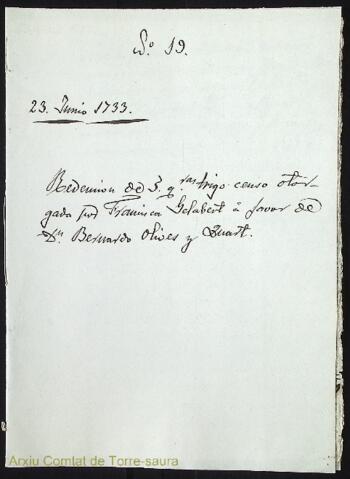 Nº 19.
23. Junio 1733.
Redencion de 3. qras trigo censo otor-
gada por Francisca Gelabert á favor de
Dn. Bernardo Olives y Squart.
Arxiu Comtat de Torre-saura